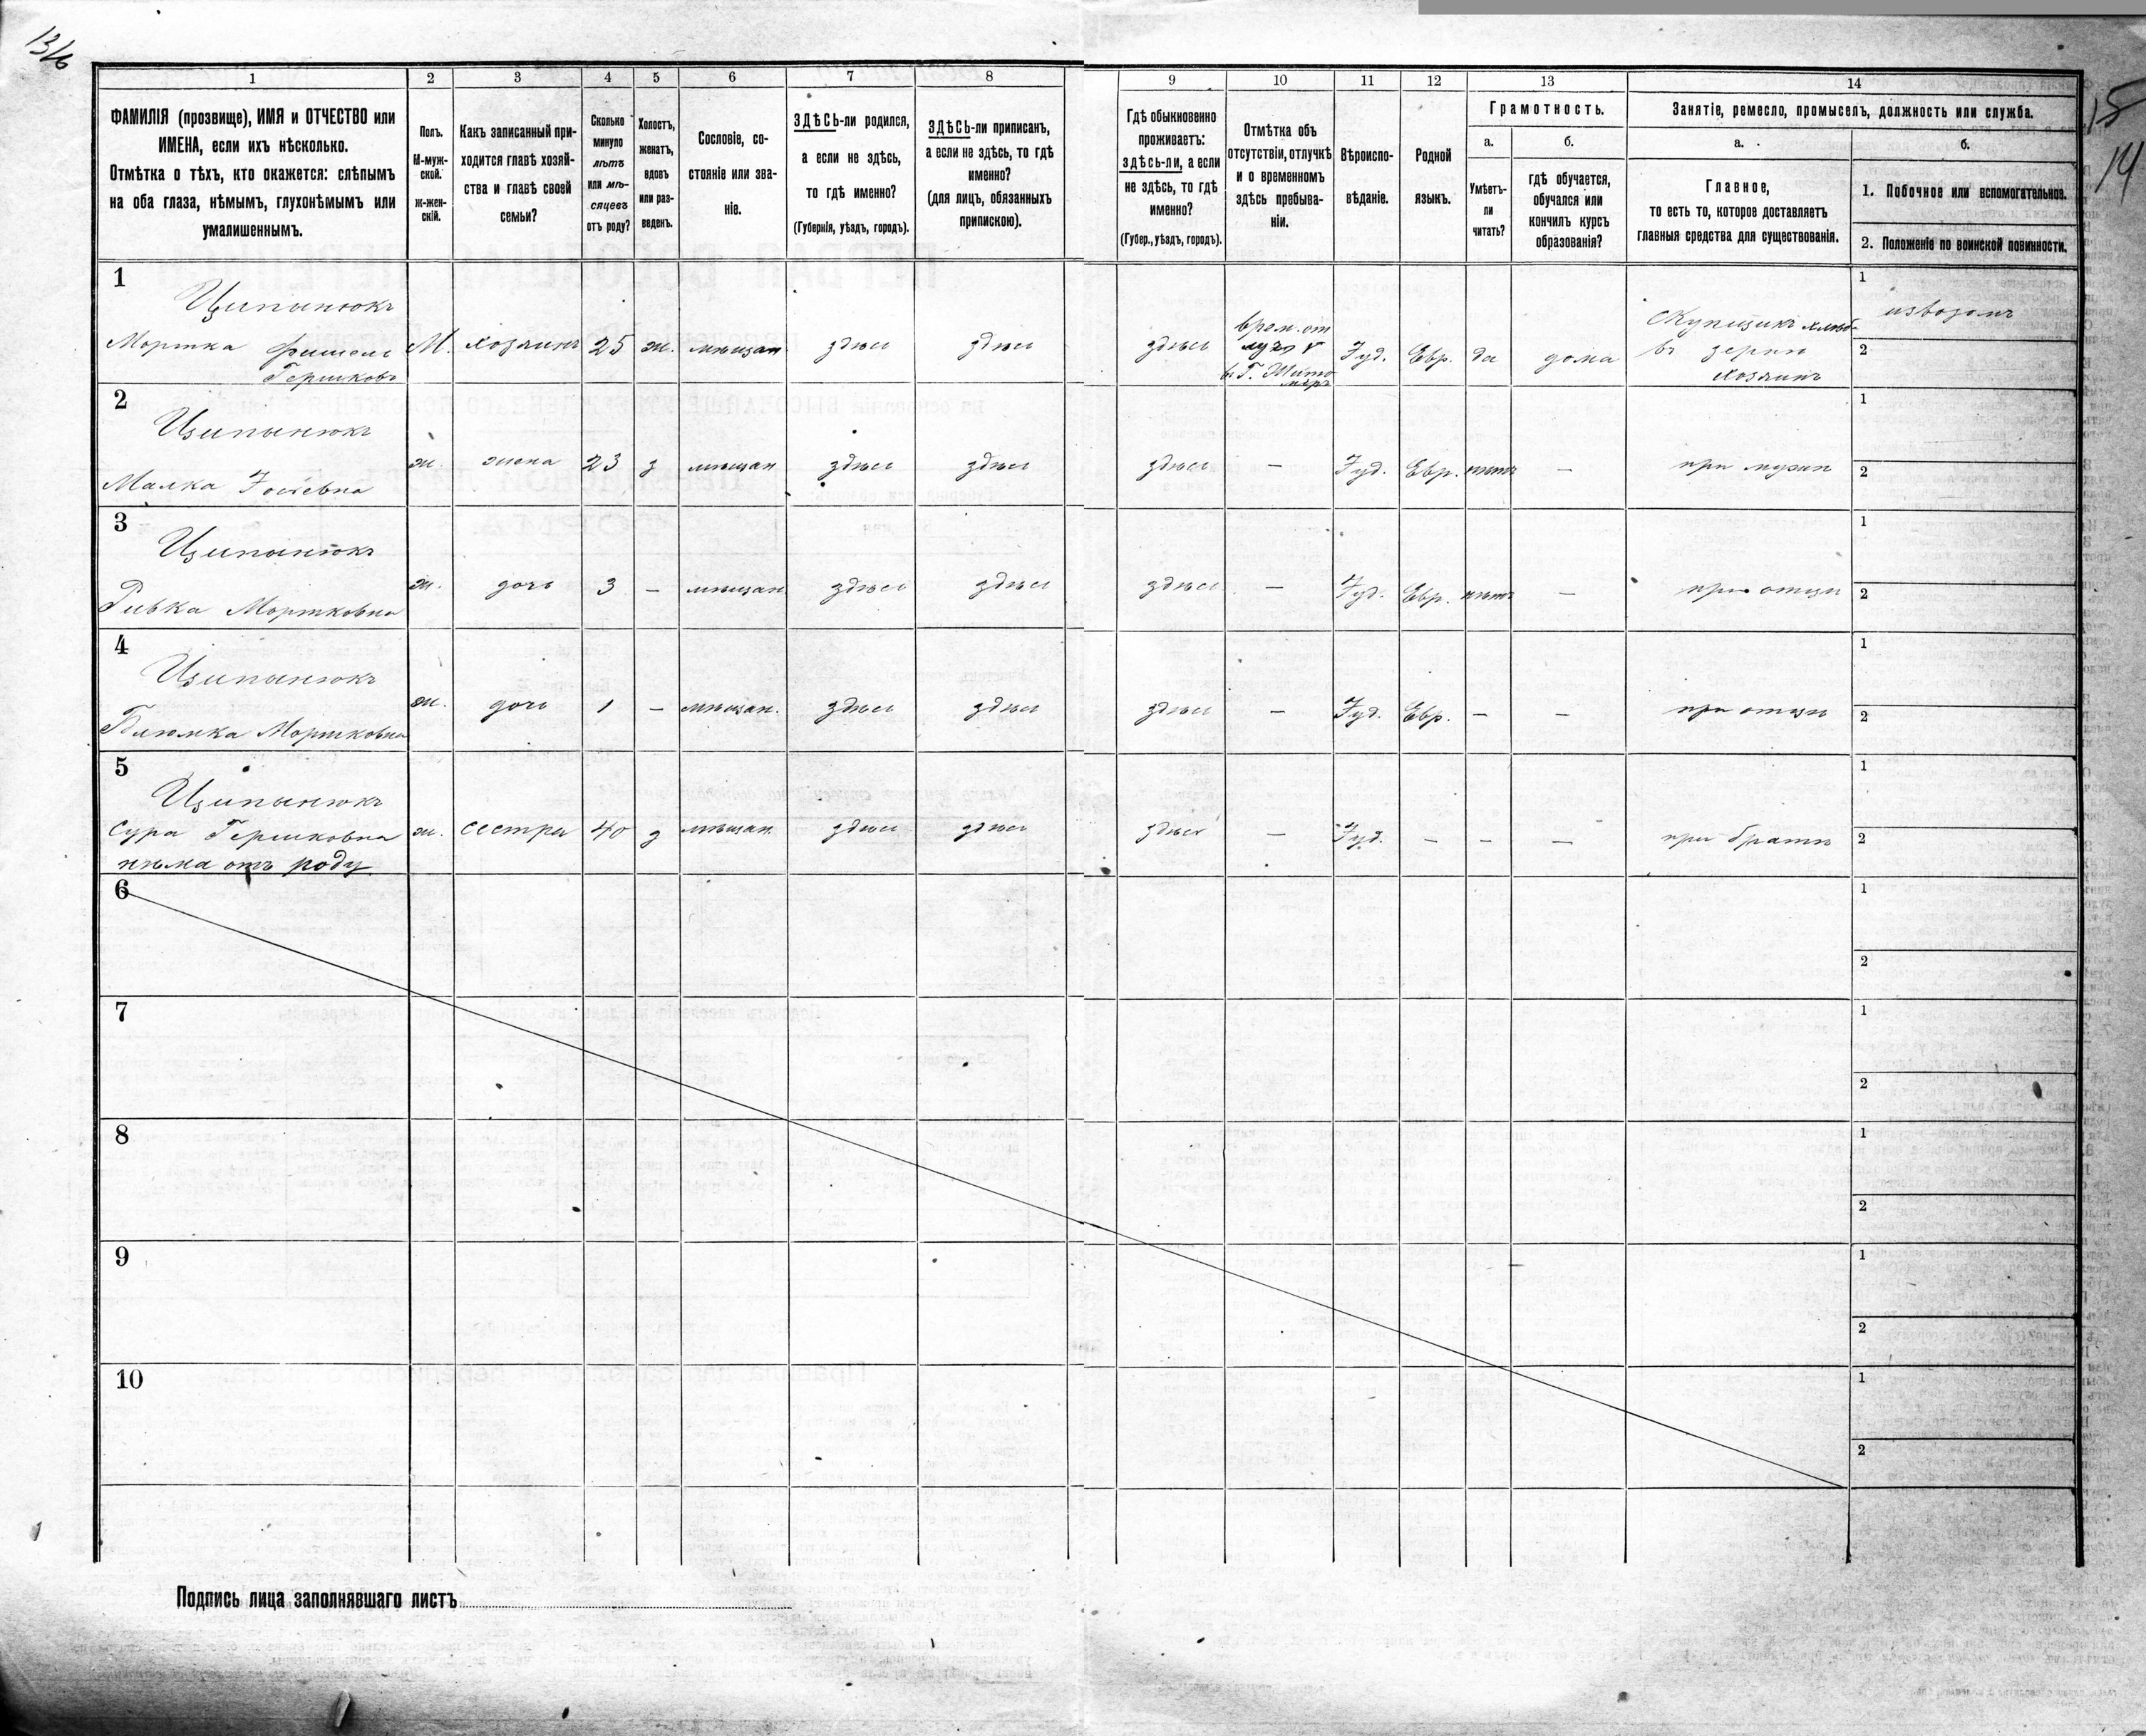 13/6
15
14
1
2
3
4
5
6
7
8
9
10
11
12
13
14
ФАМИЛІЯ (прозвище), ИМЯ и ОТЧЕСТВО или
ИМЕНА, если ихъ нѣсколько.
Отмѣтка о тѣхъ, кто окажется: слѣпымъ
на оба глаза, нѣмымъ, глухонѣмымъ или
умалишеннымъ.
Полъ.
М-муж-
ской.
ж-жен-
скій.
Какъ записанный при-
ходится главѣ хозяй-
ства и главѣ своей
семьи?
Сколько
минуло
лѣтъ
или мѣ-
сяцевъ
отъ роду?
Холостъ,
женатъ,
вдовъ
или раз-
веденъ.
Сословіе, со-
стояніе или зва-
ніе.
ЗДѢСЬ-ли родился,
а если не здѣсь,
то гдѣ именно?
(Губернія, уѣздъ, городъ).
ЗДѢСЬ-ли приписанъ,
а если не здѣсь, то гдѣ
именно?
(для лицъ, обязанныхъ
припискою).
Гдѣ обыкновенно
проживаетъ:
здѣсь-ли, а если
не здѣсь, то гдѣ
именно?
(Губер., уѣздъ, городъ).
Отмѣтка объ
отсутствіи, отлучкѣ
и о временномъ
здѣсь пребыва-
ніи.
Вѣроиспо-
вѣданіе.
Родной
языкъ.
Грамотность.
а.
Умѣетъ-
ли
читать?
б.
гдѣ обучается,
обучался или
кончилъ курсъ
образованія?
Занятіе, ремесло, промыселъ, должность или служба.
а.
Главное,
то есть то, которое доставляетъ
главныя средства для существованія.
б.
1. Побочное или вспомогательное.
2. Положеніе по воинской повинности.
1
Ципынюкъ
Мортка Фишель
Гершковъ
М.
хозяинъ
25
ж.
мѣщан
здѣсь
здѣсь
здѣсь
врем. от
луч
в Г. Жито
мѣръ
Іуд.
Евр.
да
дома
Скупщикъ хлѣба
въ зернѣ
хозяинъ
1
извозомъ
2
2
Ципынюкъ
Малка
ж.
жена
23
з
мѣщан
здѣсь
здѣсь
здѣсь
—
Іуд.
Евр.
нѣтъ
—
при мужѣ
1
2
3
Ципынюкъ
Ривка Мортковна
ж.
дочь
3
—
мѣщан
здѣсь
здѣсь
здѣсь
—
Іуд.
Евр.
нѣтъ
—
при отцѣ
1
2
4
Ципынюкъ
Блюмка Мортковна
ж.
дочь
1
—
мѣщан.
здѣсь
здѣсь
здѣсь
—
Іуд.
Евр.
—
—
при отцѣ
1
2
5
Ципынюкъ
Сура Гершковна
нѣма отъ роду
ж.
сестра
40
д
мѣщан
здѣсь
здѣсь
здѣсь
—
Іуд.
—
—
—
при братѣ
1
2
6
1
2
7
1
2
8
1
2
9
1
2
10
1
2
Подпись лица заполнявшаго листъ